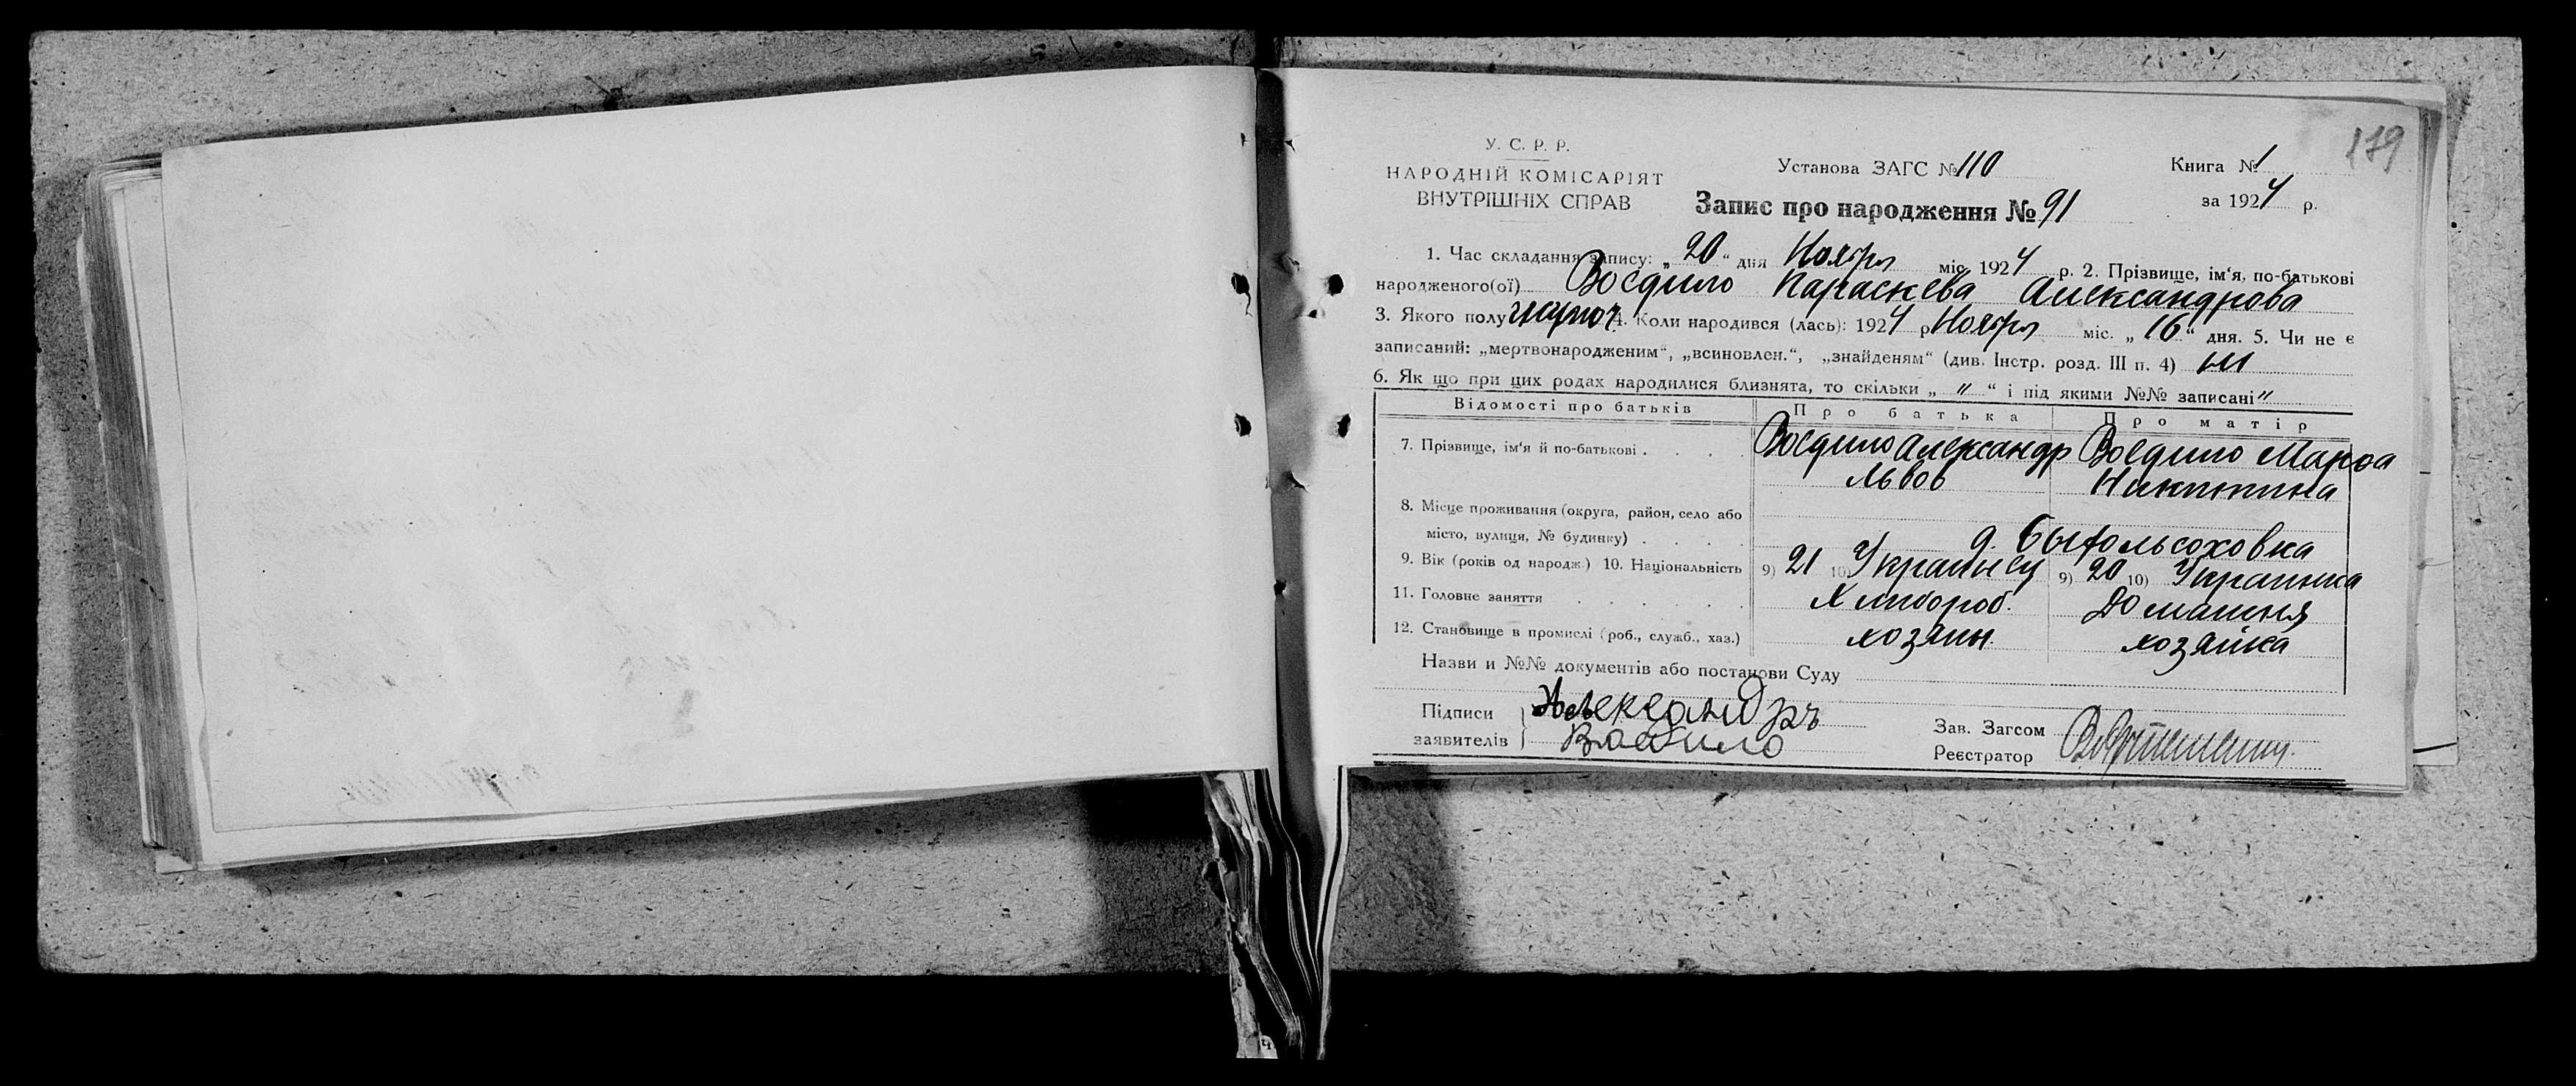 179
У. С. Р. Р.
НАРОДНІЙ КОМІСАРІЯТ
ВНУТРІШНІХ СПРАВ
Установа ЗАГС № 110
Книга № 1
за 1924 р.
Запис про народження № 91
1. Час складання запису: „20“ дня Ноября міс. 1924 р. 2. Прізвище, ім'я, по-батькові
народженого(ої) Воедило Параскева Александрова
3. Якого полу 4. Коли народився (лась): 1924 р. Ноября міс. „16“ дня. 5. Чи не є
записаний: „мертвонародженим“, „всиновлен.“, „знайденям“ (див. Інстр. розд. III п. 4)
6. Як що при цих родах народилися близнята, то скільки „ " “ і під якими №№ записані "
Відомості про батьків Про батька Про матір
7. Прізвище, ім'я й по-батькові . . . . Воедило Александр Воедило Марфа
Львов Никитина
8. Місце проживання (округа, район, село або
місто, вулиця, № будинку) . . . . д.
9. Вік (років од народж.) 10. Національність 9) 21 10) 9) 20 10) Украинка
11. Головне заняття . . . . . . Хлибороб. Домашня
12. Становище в промислі (роб., служб., хаз.) хозяин хозяйка
Назви и №№ документів або постанови Суду
Підписи Александръ
заявителів
Зав. Загсом
Реєстратор